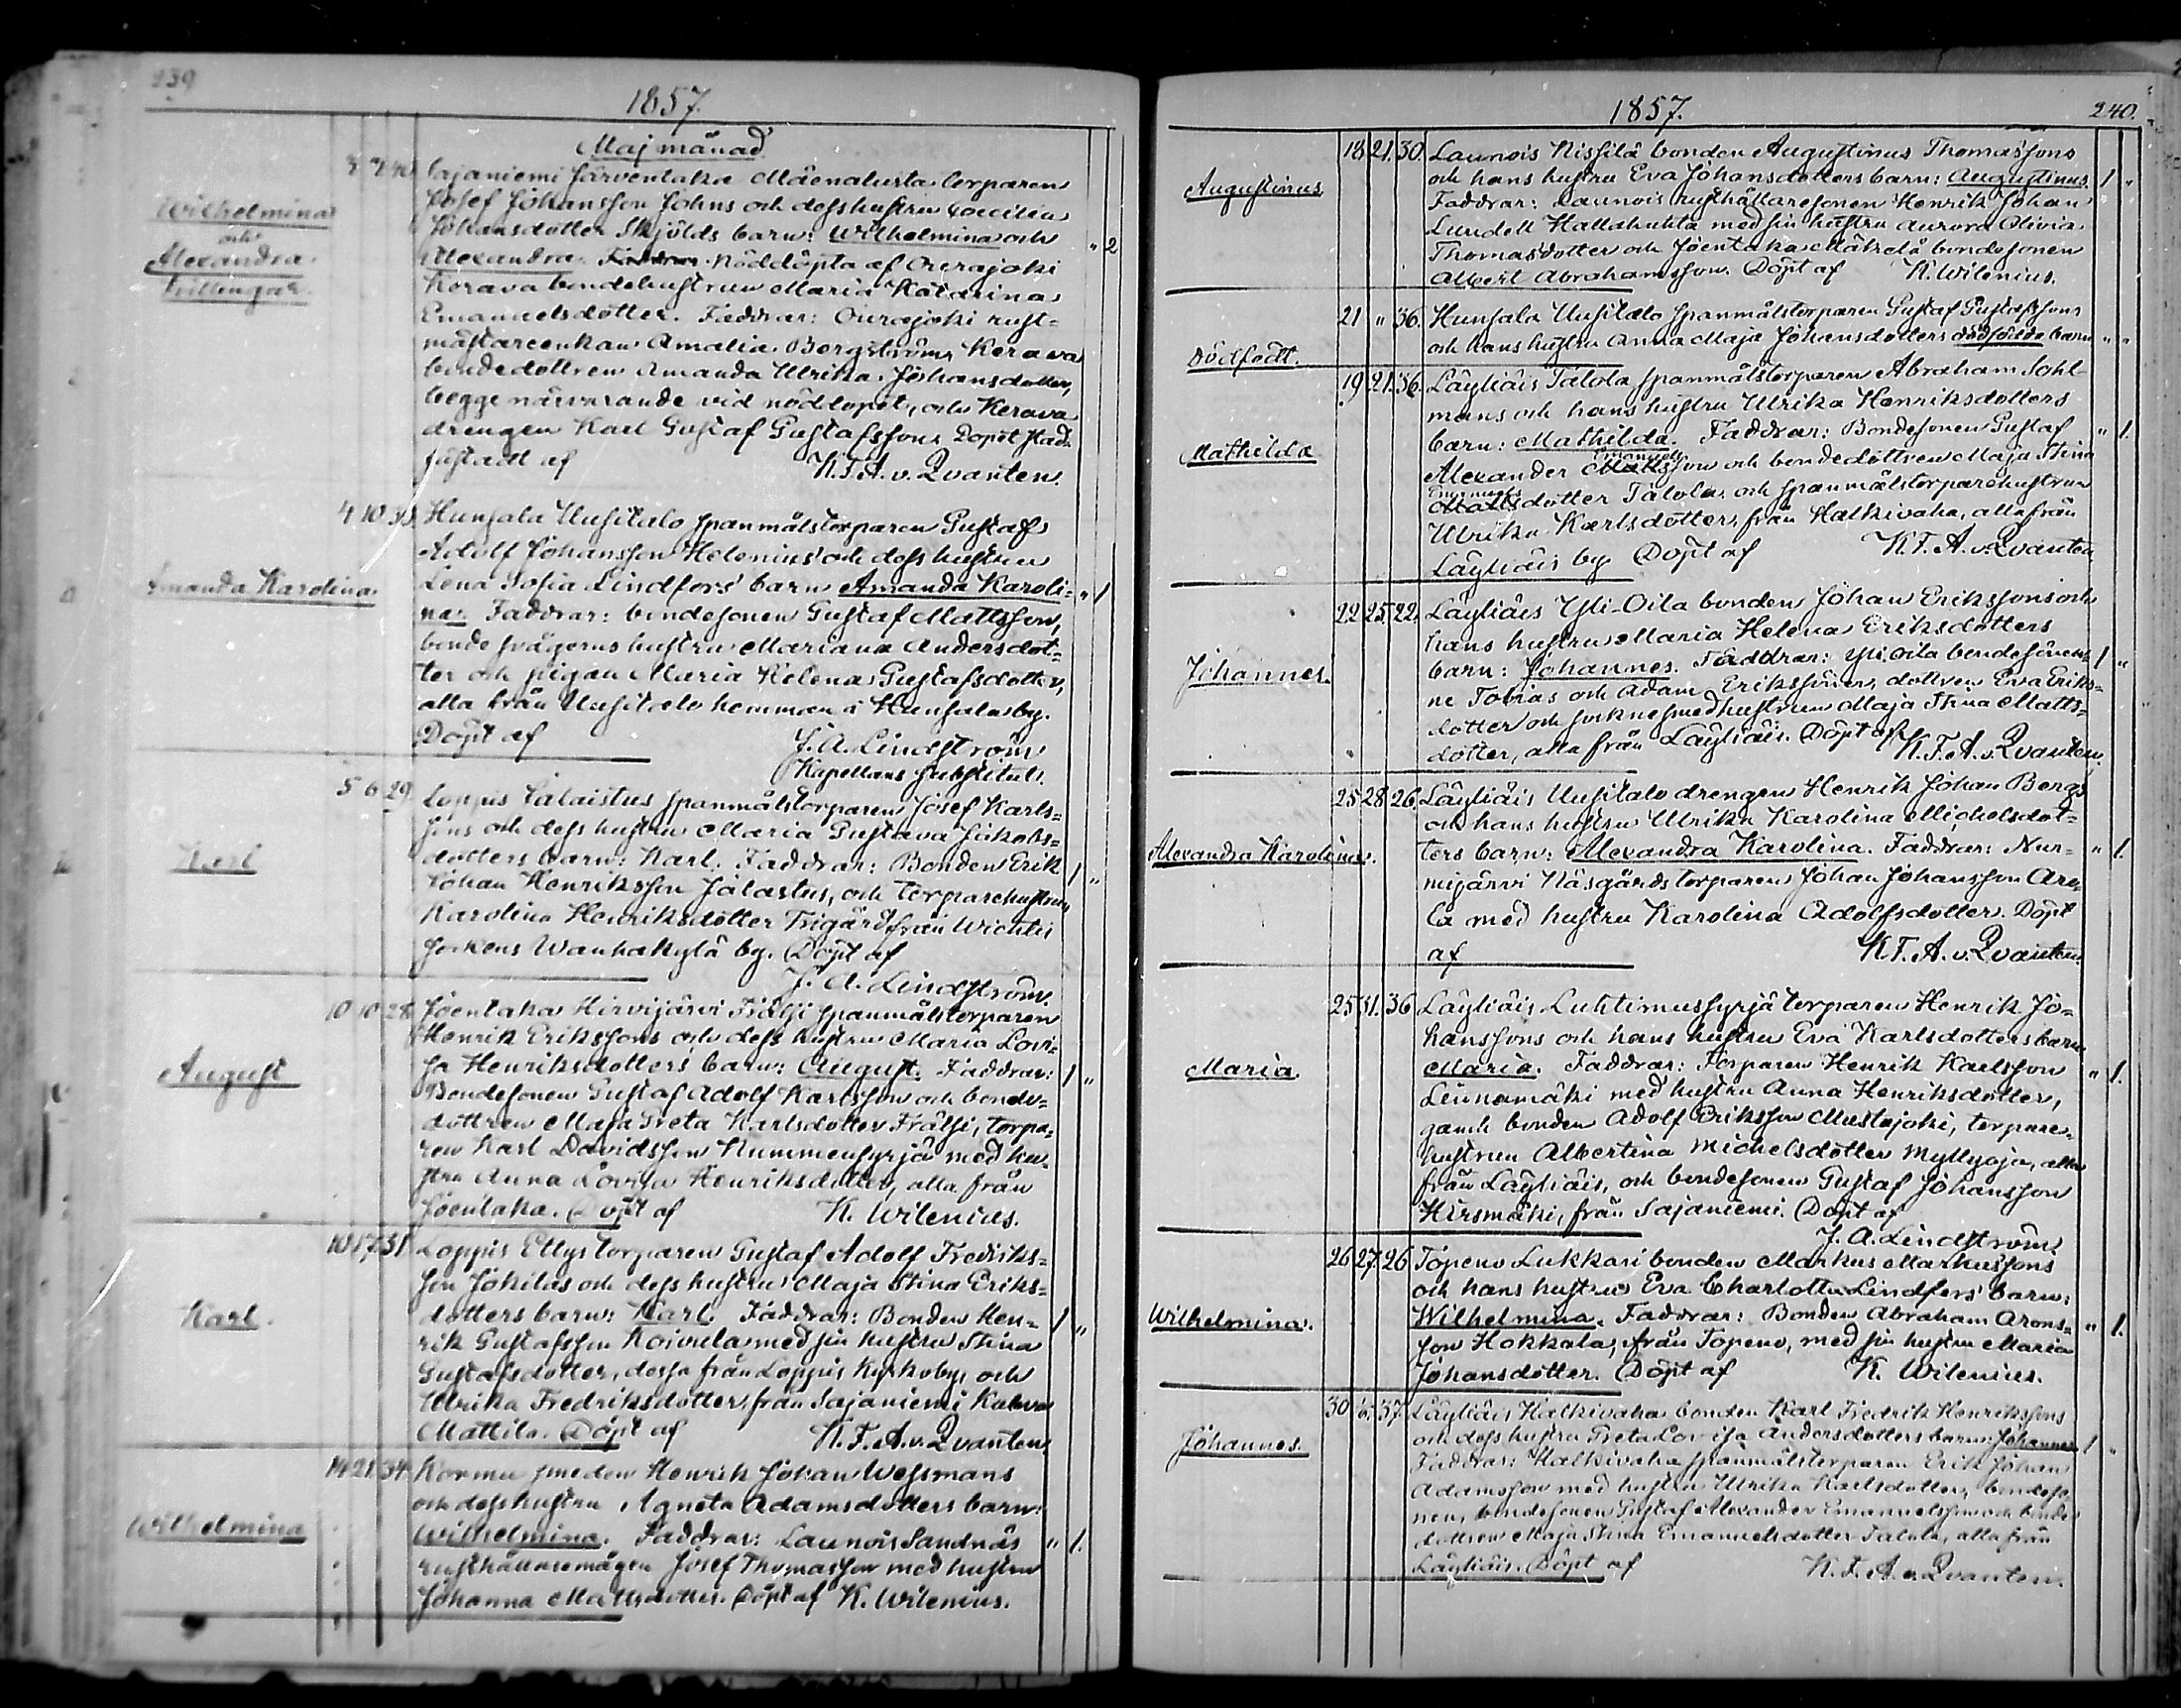 239
1857.
Maj månad
Wilhelmina
och
Alexandra
Tvillingar.
Sajaniemi Järventaka Mäenalusta torparen
Josef Johansson Johns och dess hustru Coecilia
Johansdotter Skjölds barn: Wilhelmina och
Alexandra. Nöddöpta af Ourajoki
" 2
Kerava bondehustrun Maria Katarina
Emanuelsdotter. Faddrar: Ourajoki rust=
mästareenkan Amalia Borgström, Kerava
bondedottren Amanda Ulrika Johansdotter,
begge närvarande vid nöddopet, och Kerava
drengen Karl Gustaf Gustafsson. Dopet stad=
fästadt af K.F.A.v.Qvanten.
Amanda Karolina
4 10 33 Hunsala Uusitalo spanmålstorparen Gustaf
Adolf Johansson Helenius' och dess hustru
Lena Sofia Lindfors' barn Amanda Karoli= " 1
na. Faddrar: bondesonen Gustaf Mattsson,
bonde svågerns hustru Mariana Andersdot=
ter och pigan Maria Helena Gustafsdotter,
alla från Uusitalo hemman i Hunsala by.
Döpt af J.A. Lindström
Kapellans substitut.
Karl
5 6 29 Loppis Jalaistus spanmålstorparen Josef Karls=
sons och dess hustru Maria Gustava Jakobs=
dotters barn: Karl. Faddrar: Bonden Erik 1 "
Johan Henriksson Jalastus, och torparehustrun
Karolina Henriksdotter från Wichtis
sockens Wanhakylä by. Döpt af
J. A. Lindström.
August
10 10 28 Joentaka Hirvijärvi Frälsi spanmålstorparen
Henrik Erikssons och dess hustru Maria Lovi=
sa Henriksdotters barn: August. Faddrar: 1 "
Bondesonen Gustaf Adolf Karlsson och bonde=
dottren Maja Greta Karlsdotter Frälsi, torpa=
ren Karl Davidsson Nummensyrjä med hu=
stru Anna Lovisa Henriksdotter, alla från
Joentaka. Döpt af K. Wilenius.
Karl.
10 17 31 Loppis Ellys torparen Gustaf Adolf Fredriks=
son Jokilas och dess hustru Maja Stina Eriks=
dotters barn: Karl. Faddrar: Bonden Hen= 1 "
rik Gustafsson Koivula med sin hustru Stina
Gustafsdotter, dessa från Loppis Kyrkoby, och
Ulrika Fredriksdotter, från Sajaniemi
Mattila. Döpt af K.F.A.v.Qvanten
Wilhelmina
14 21 34 Kormu smeden Henrik Johan Wessmans
och dess hustru Agneta Adamsdotters barn:
Wilhelmina. Faddrar: Launois Sandnäs " 1.
rusthållaremågen Josef Thomasson med hustru
Johanna Mattsdotter. Döpt af K. Wilenius.
1857. 240.
Augustinus
18 21. 30. Launois Nissilä bonden Augustinus Thomassons
och hans hustru Eva Johansdotters barn: Augustinus. 1 "
Faddrar: Launois rusthållaresonen Henrik Johan
Lundell Hallahuhta med sin hustru Aurora Olivia
Thomasdotter och Joentaka Mäkelä bondesonen
Albert Abrahamsson. Döpt af K. Wilenius.
Dödfödt.
21 " 36. Hunsala Uusitalo spanmålstorparen Gustaf Gustafssons
och hans hustru Anna Maja Johansdotters dödfödda barn " "
Mathilda
19 21. 36. Läyliäis Talola spanmålstorparen Abraham Sohl=
mans och hans hustru Ulrika Henriksdotters
barn: Mathilda. Faddrar: Bondesonen Gustaf " 1.
Emanuels
Alexander Mattsson och bondedottren Maja Stina
Emanuels
Mattsdotter Talola, och spanmålstorparehustrun
Ulrika Karlsdotter, från Halkivaha, alla från
Läyliäis by. Döpt af K.F.A.v.Qvanten
Johannes.
22 25. 22. Läyliäis Yli-Oila bonden Johan Erikssons och
hans hustru Maria Helena Eriksdotters
barn: Johannes. Faddrar: Yli-Oila bondesöner= 1 "
ne Tobias och Adam Erikssöner, dottren Eva Eriks=
dotter och socknesmedhustrun Maja Stina Matts=
dotter, alla från Läyliäis. Döpt af
K.F.A.v.Qvanten.
Alexandra Karolina.
25 28 26. Läyliäis Uusitalo drengen Henrik Johan Bergs
och hans hustru Ulrika Karolina Michelsdot=
ters barn: Alexandra Karolina. Faddrar: Nur= " 1.
mijärvi Näsgårds torparen Johan Johansson Are=
la med hustru Karolina Adolfsdotter. Döpt
af K.F.A.v.Qvanten.
Maria.
25 31. 36 Läyliäis Luhtimussyrjä torparen Henrik Jo=
hanssons och hans hustru Eva Karlsdotters barn
Maria. Faddrar: Torparen Henrik Karlsson " 1.
Linnamäki med hustru Anna Henriksdotter,
gamle bonden Adolf Eriksson Mustajoki, torpare=
hustrun Albertina Michelsdotter Myllyoja, alla
från Läyliäis, och bondesonen Gustaf Johansson
Hirsmäki, från Sajaniemi. Döpt af
J. A. Lindström
Wilhelmina.
26 27. 26 Topeno Lukkari bonden Markus Markussons
och hans hustru Eva Charlotta Lindfors' barn:
Wilhelmina. Faddrar: Bonden Abraham Arons= " 1.
son Hokkala, från Topeno, med sin hustru Maria
Johansdotter. Döpt af K. Wilenius.
Johannes.
30 37. Läyliäis Halkivaha bonden Karl Fredrik Henrikssons
och dess hustru Greta Lovisa Andersdotters barn: Johannes 1 "
Faddrar: Halkivaha spanmålstorparen Erik Johan
Adamsson med hustru Ulrika Karlsdotter, bondeso
nen, bondesonen Gustaf Alexander Emanuelsson och bonde
dottren Maja Stina Emanuelsdotter Talola, alla från
Läyliäis. Döpt af K.F.A.v.Qvanten.